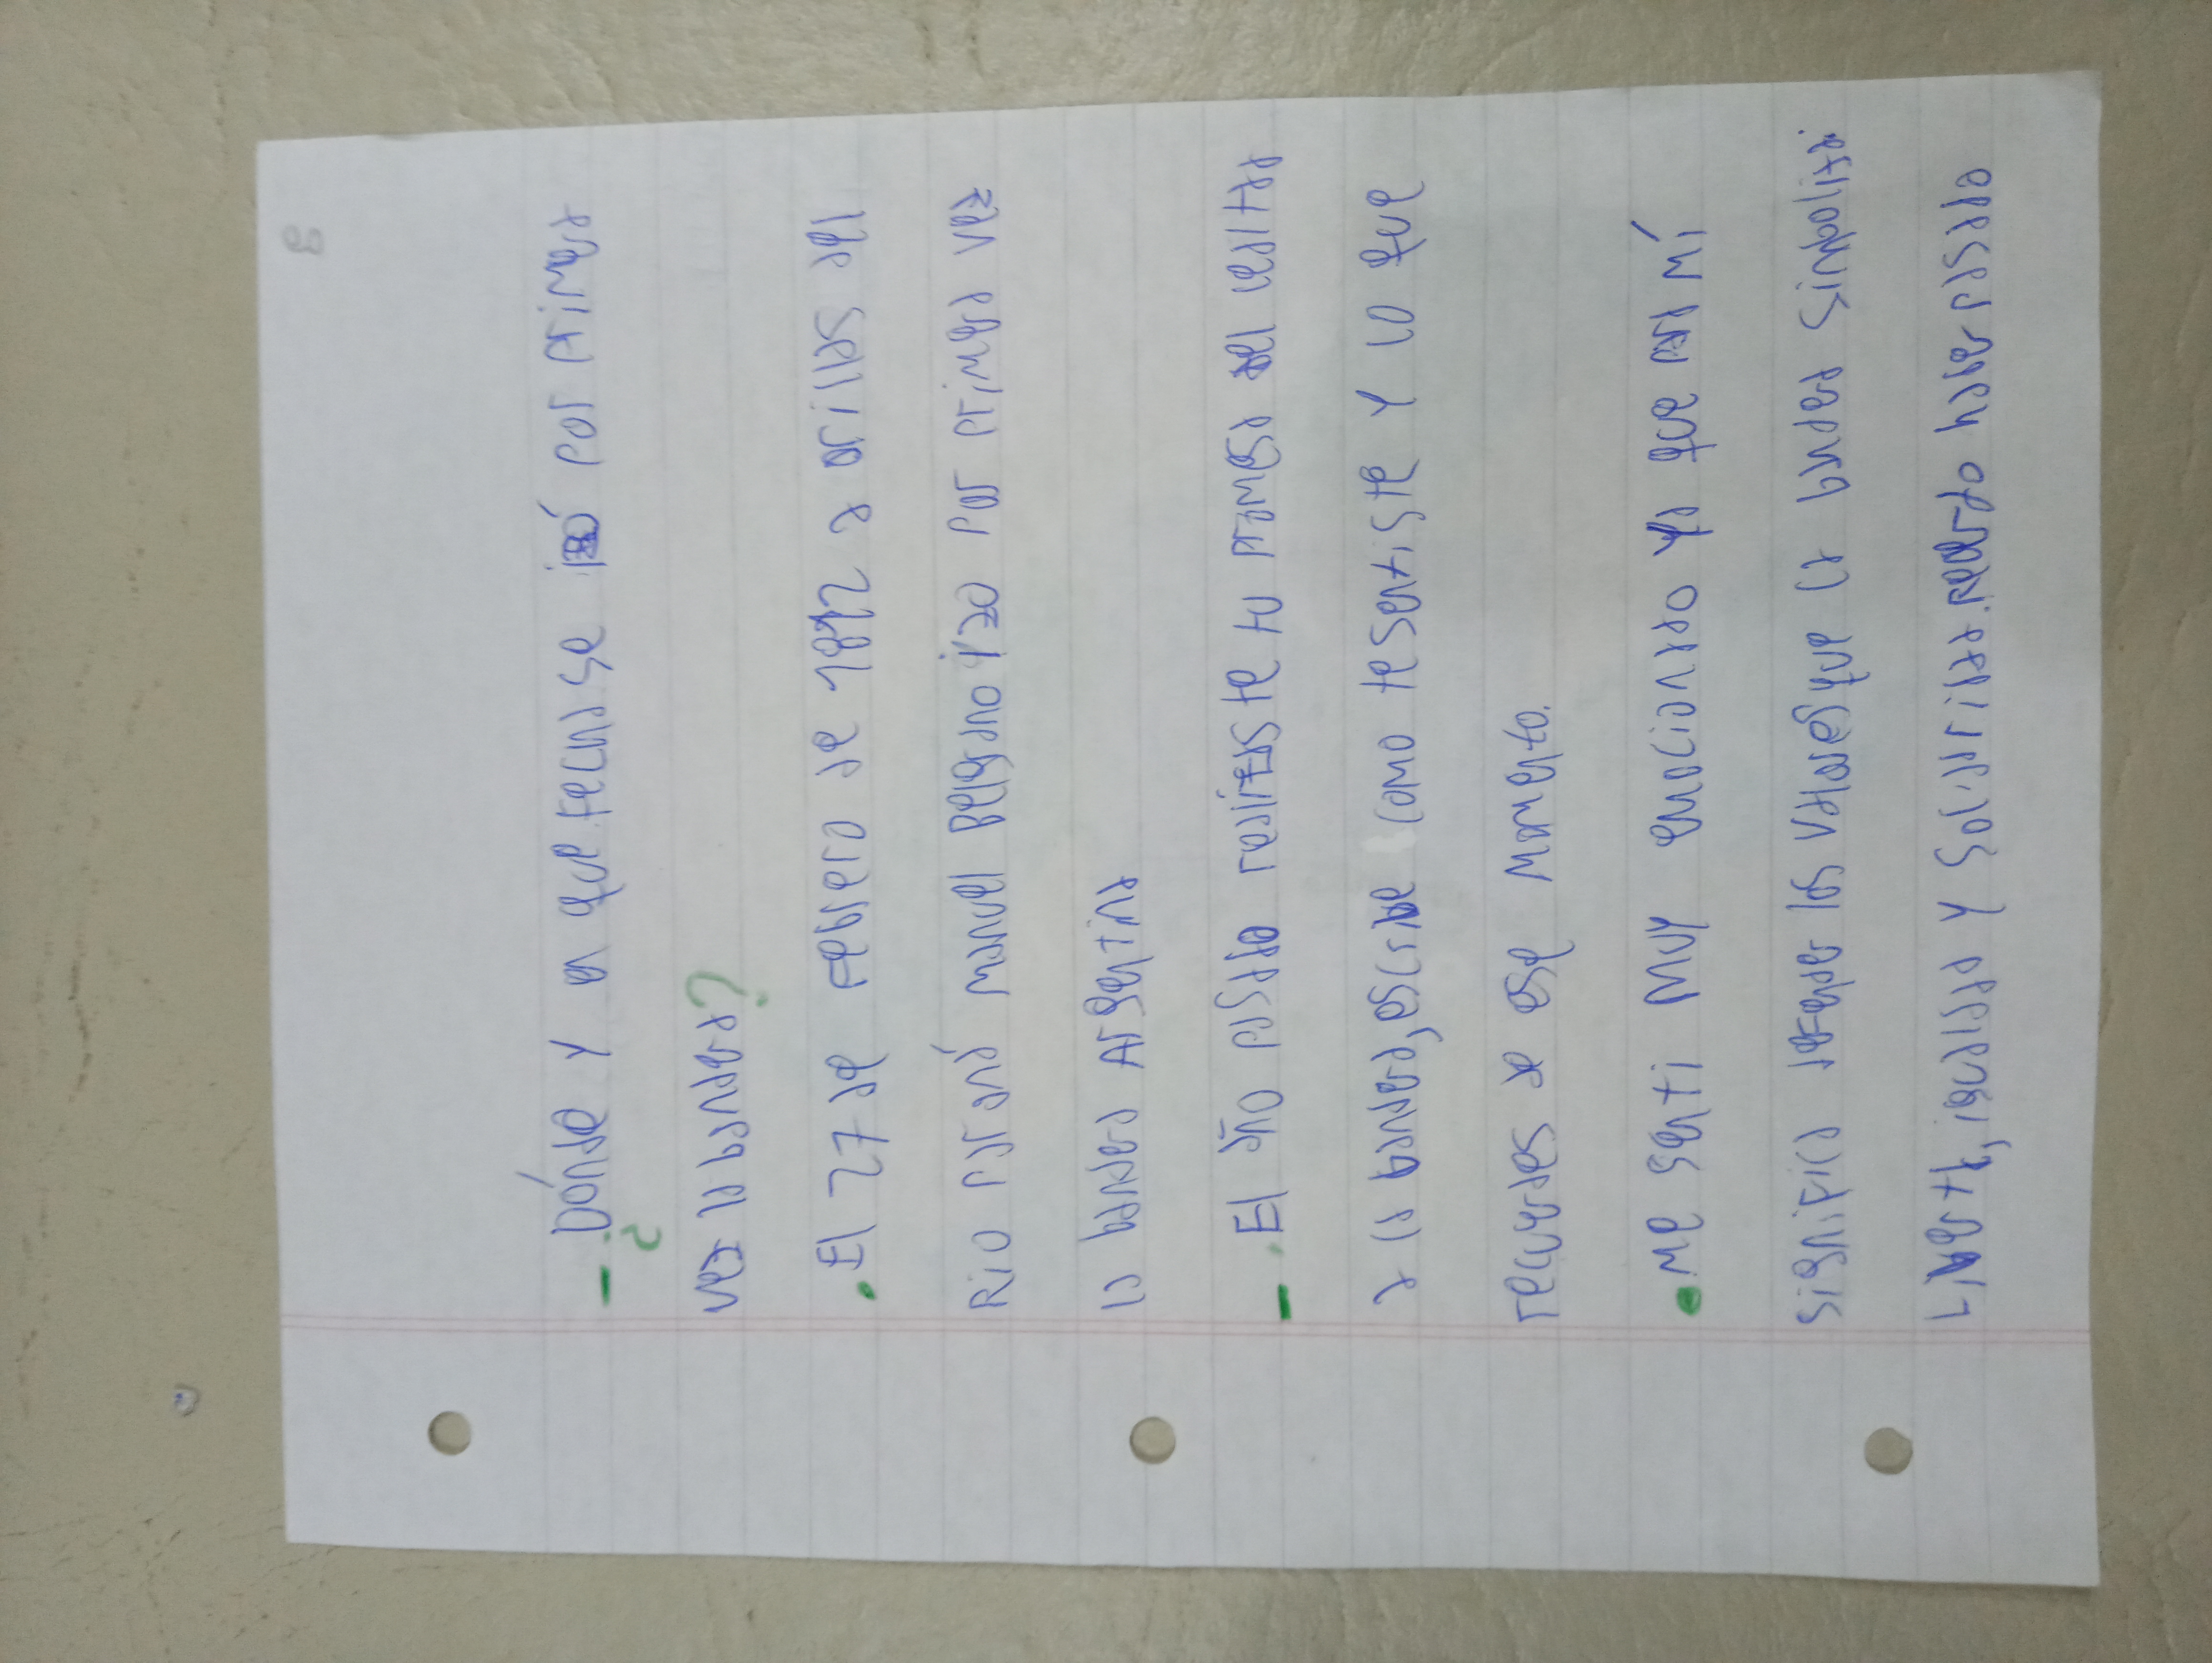 - ¿Dónde y en que fecha se izó por primera
vez la bandera?
• El 27 de Febrero de 1812 a orillas del
Rio Paraná manuel Belgrano izo por primera vez
la bandera Argentina
- El año pasado realizaste tu promesa de lealtad
a la bandera, escribe como te sentiste y lo que
recuerdas de ese momento.
• Me senti muy emocionado ya que para mí
significa defender los valores que la bandera simboliza:
Libertad, igualdad y solidaridad. Recuerdo haber estado